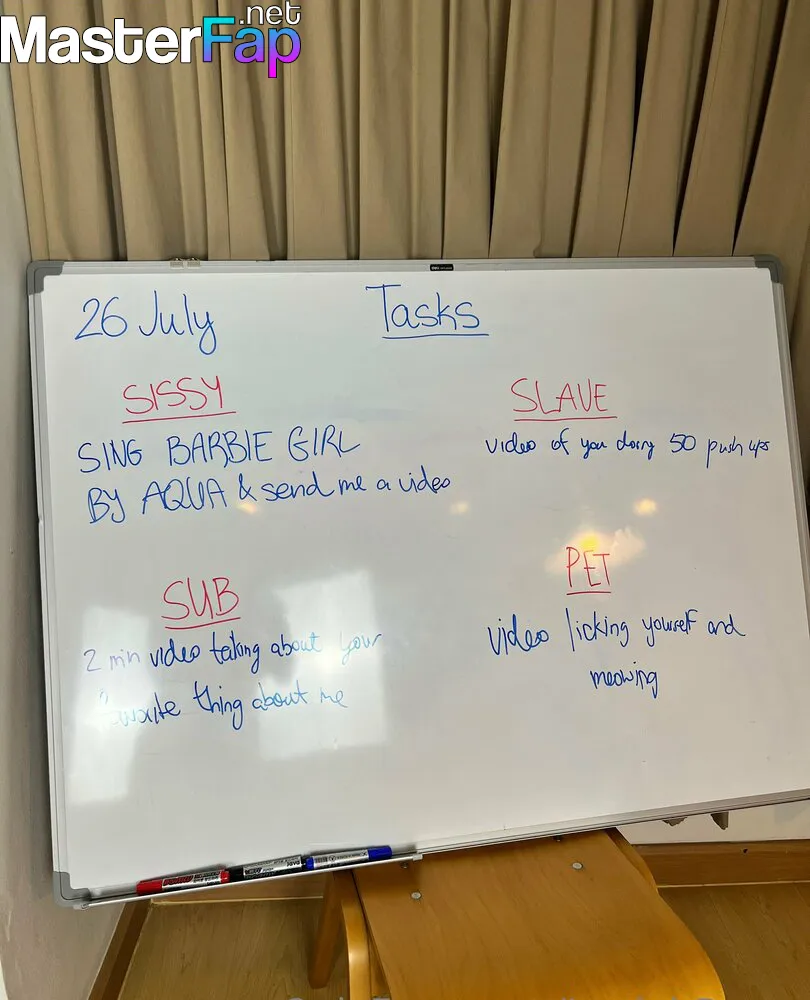 MasterFap.net
26 July
Tasks
SISSY
SING BARBIE GIRL
BY AQUA & send me a video
SLAVE
video of you doing 50 push ups
SUB
2 min video talking about your
favourite thing about me
PET
video licking yourself and
meowing